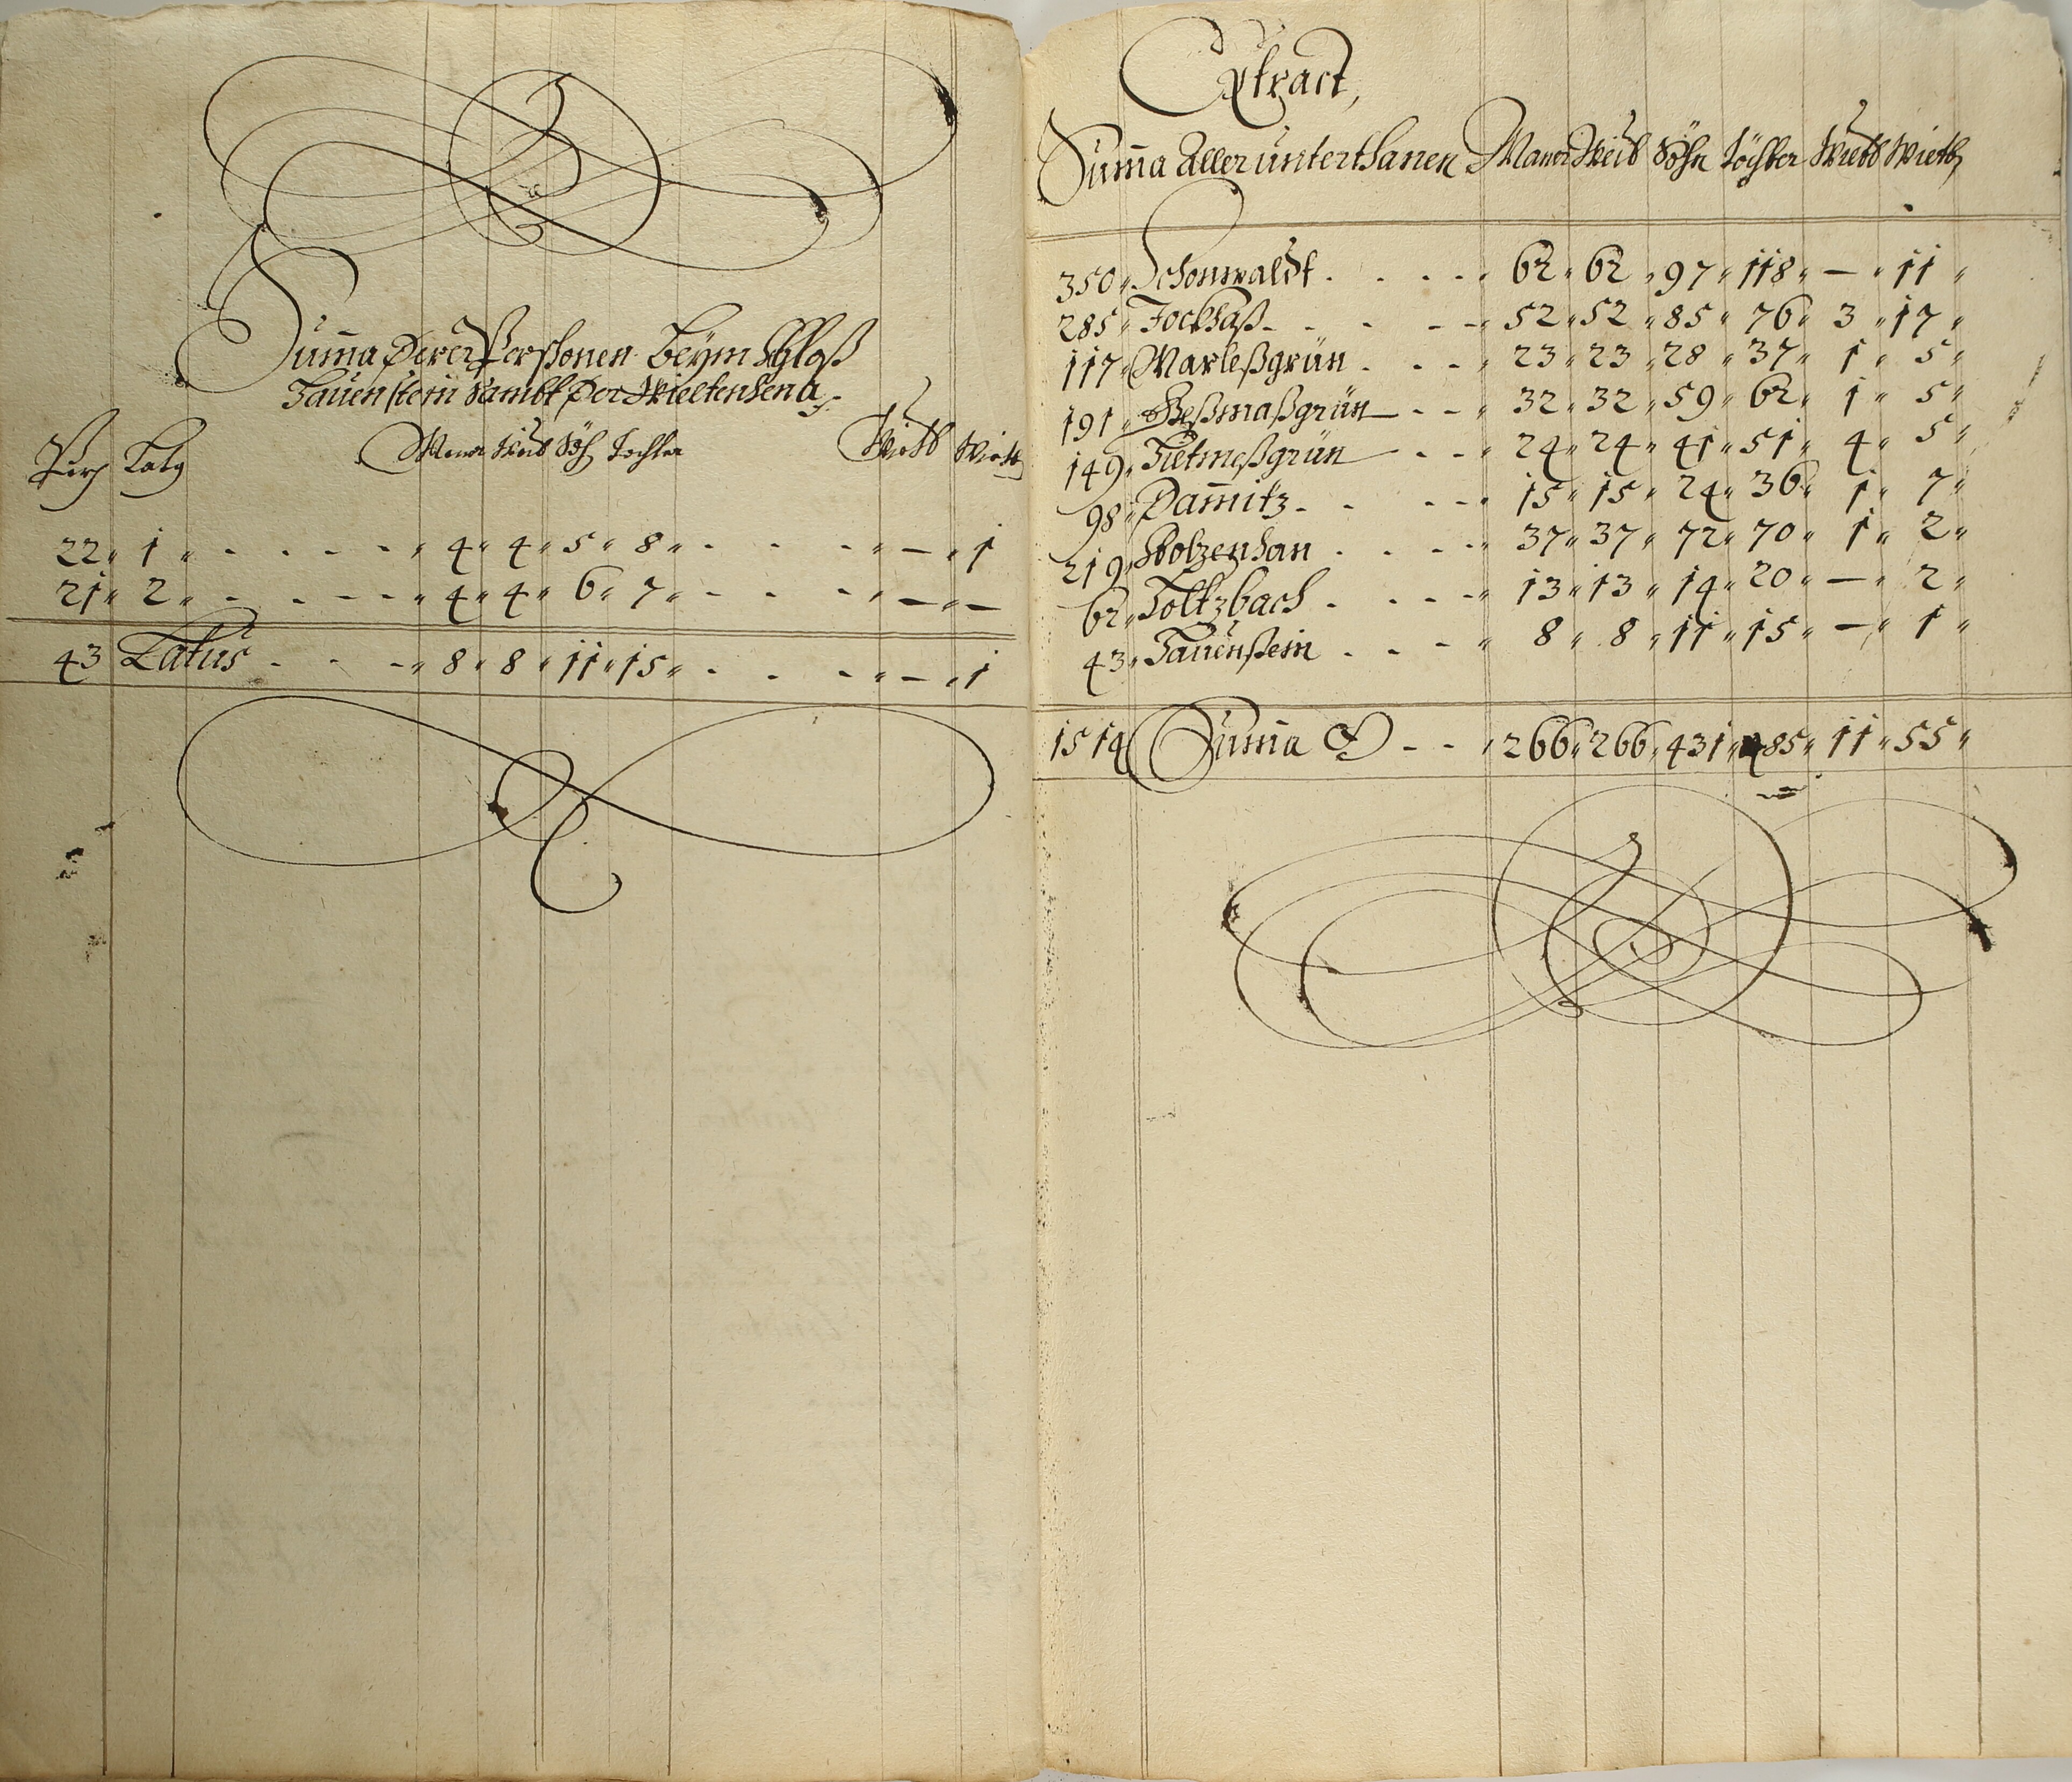 Suma Derer Perschonen Beÿm Schloß
Taüenstein Sambt Der
Perß Latg Maner Weib Söhn Tochter Wietb Wietb
22 1 4 4 5 8 — 1
21 2 4 4 6 7 — —
43 Latus 8 8 11 15 — 1
Extract,
Suma Aller unterthanen Maner Weib Söhn Töchter Wietb Wietb
350 Schonwaldt 62 62 97 118 — 11
285 Jockhaß 52 52 85 76 3 17
117 Marleßgrün 23 23 28 37 1 5
191 Geßmaßgrün 32 32 59 62 1 5
149 Tietmeßgrün 24 24 41 51 4 5
98 Damitz 15 15 24 36 1 7
219 Stolzenhan 37 37 72 70 1 2
62 Holtzbach 13 13 14 20 — 2
43 Taüenstein 8 8 11 15 — 1
1514 Suma 266 266 431 485 11 55